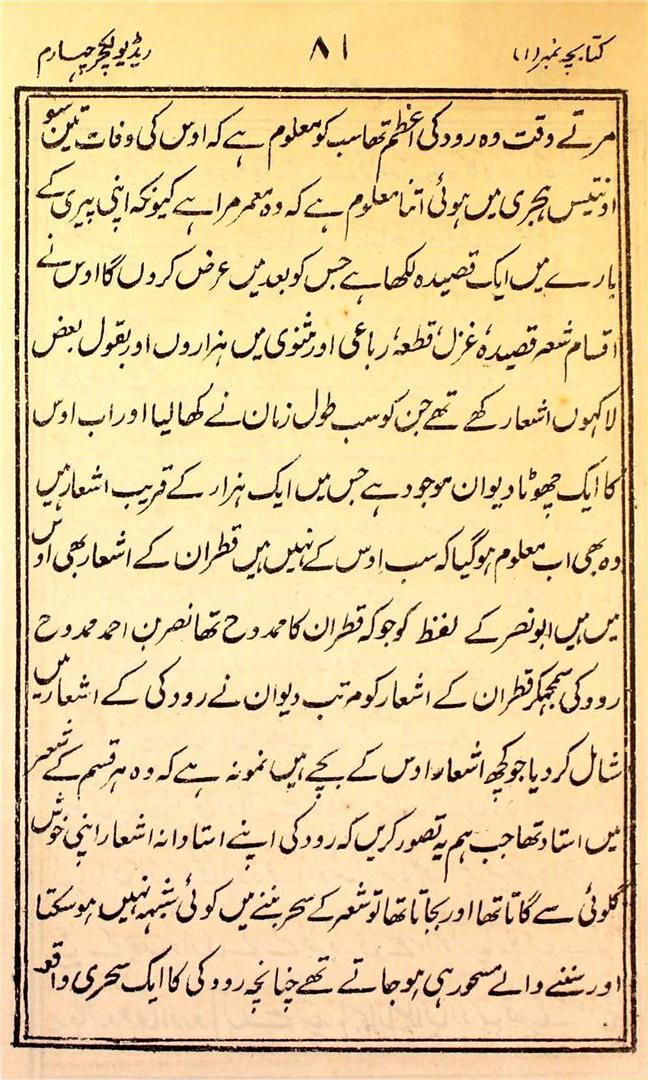 کتابچہ نمبر (۱)
۸۱
ریڈیو لکچر چہارم
مرتے وقت وہ رودکی اعظم تھا سب کو معلوم ہے کہ اوس کی وفات تین سو
اونتیس ہجری میں ہوئی اتنا معلوم ہے کہ وہ معمر مرا ہے کیونکہ اپنی پیری کے
بارے میں ایک قصیدہ لکھا ہے جس کو بعد میں عرض کروں گا اوس نے
اقسام شعر قصیدہ، غزل، قطعہ، رباعی اور مثنوی میں ہزاروں اور بقول بعض
لاکہوں اشعار کھے تھے جن کو سب طول زمان نے کھا لیا اور اب اوس
کا ایک چھوٹا دیوان موجود ہے جس میں ایک ہزار کے قریب اشعار ہیں
وہ بھی اب معلوم ہو گیا کہ سب اوس کے نہیں ہیں قطران کے اشعار بھی اوس
میں ہیں ابونصر کے لفظ کو جو کہ قطران کا ممدوح تھا نصر بن احمد ممدوح
رودکی سمجہکر قطران کے اشعار کو مرتب دیوان نے رودکی کے اشعار میں
شامل کر دیا جو کچھ اشعار اوس کے بچے ہیں نمونہ ہے کہ وہ ہر قسم کے شعر
میں استاد تھا جب ہم یہ تصور کریں کہ رودکی اپنے استادانہ اشعار اپنی خوش
گلوئی سے گاتا تھا اور بجاتا تھا تو شعر کے سحر بننے میں کوئی شبہہ نہیں ہو سکتا
اور سننے والے مسحور ہی ہو جاتے تھے چنانچہ رودکی کا ایک سحری واقعہ